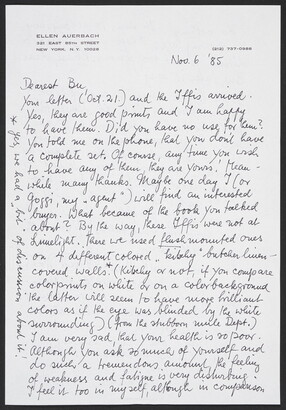 ELLEN AUERBACH
231 EAST 80TH STREET
NEW YORK, N.Y. 10028
(212) 737-0888
Nov. 6 '85
Dearest Bu,
Your letter (Oct. 21.) and the Iffis arrived.
Yes, they are good prints and I am happy
to have them. Did you have no use for them?
You told me on the phone, that you don't have
a complete set. Of course, any time you wish
to have any of them, they are yours. Mean-
while many thanks. Maybe one day I (or
Goggi, my "agent*) will find an interested
buyer. What became of the book you talked
about? By the way, these Iffis were not at
Limelight. There we used flushmounted ones
on 4 different colored, "kitschy" butcher linen-
covered walls. (Kitschy or not, if you compare
colorprints on white or on a color background
the latter will seem to have more brilliant
colors as if the eye was blinded by the white
surrounding) (from the stubborn mule Dept.)
I am very sad, that your health is so poor.
Although you ask so much of yourself and
do such a tremendous amount, the feeling
of weakness and fatigue is very disturbing.
I feel it too in myself, although in comparison
* Yes, we had a bit of discussion about it!